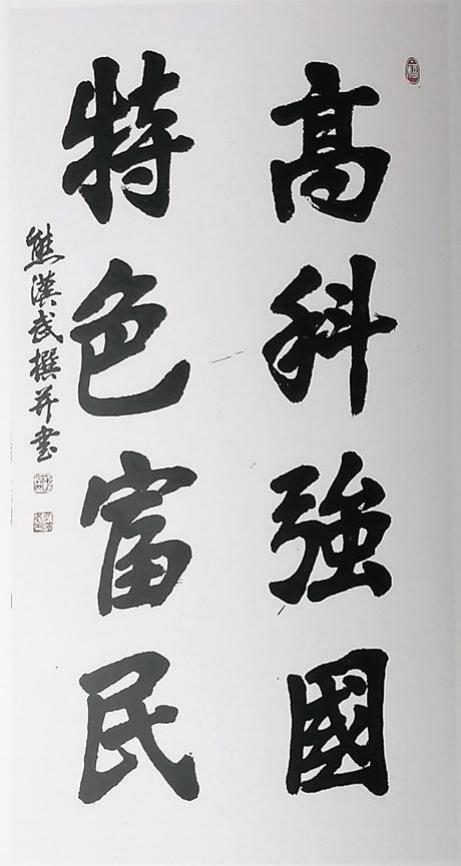 高科強國
特色富民
熊漢武撰并書